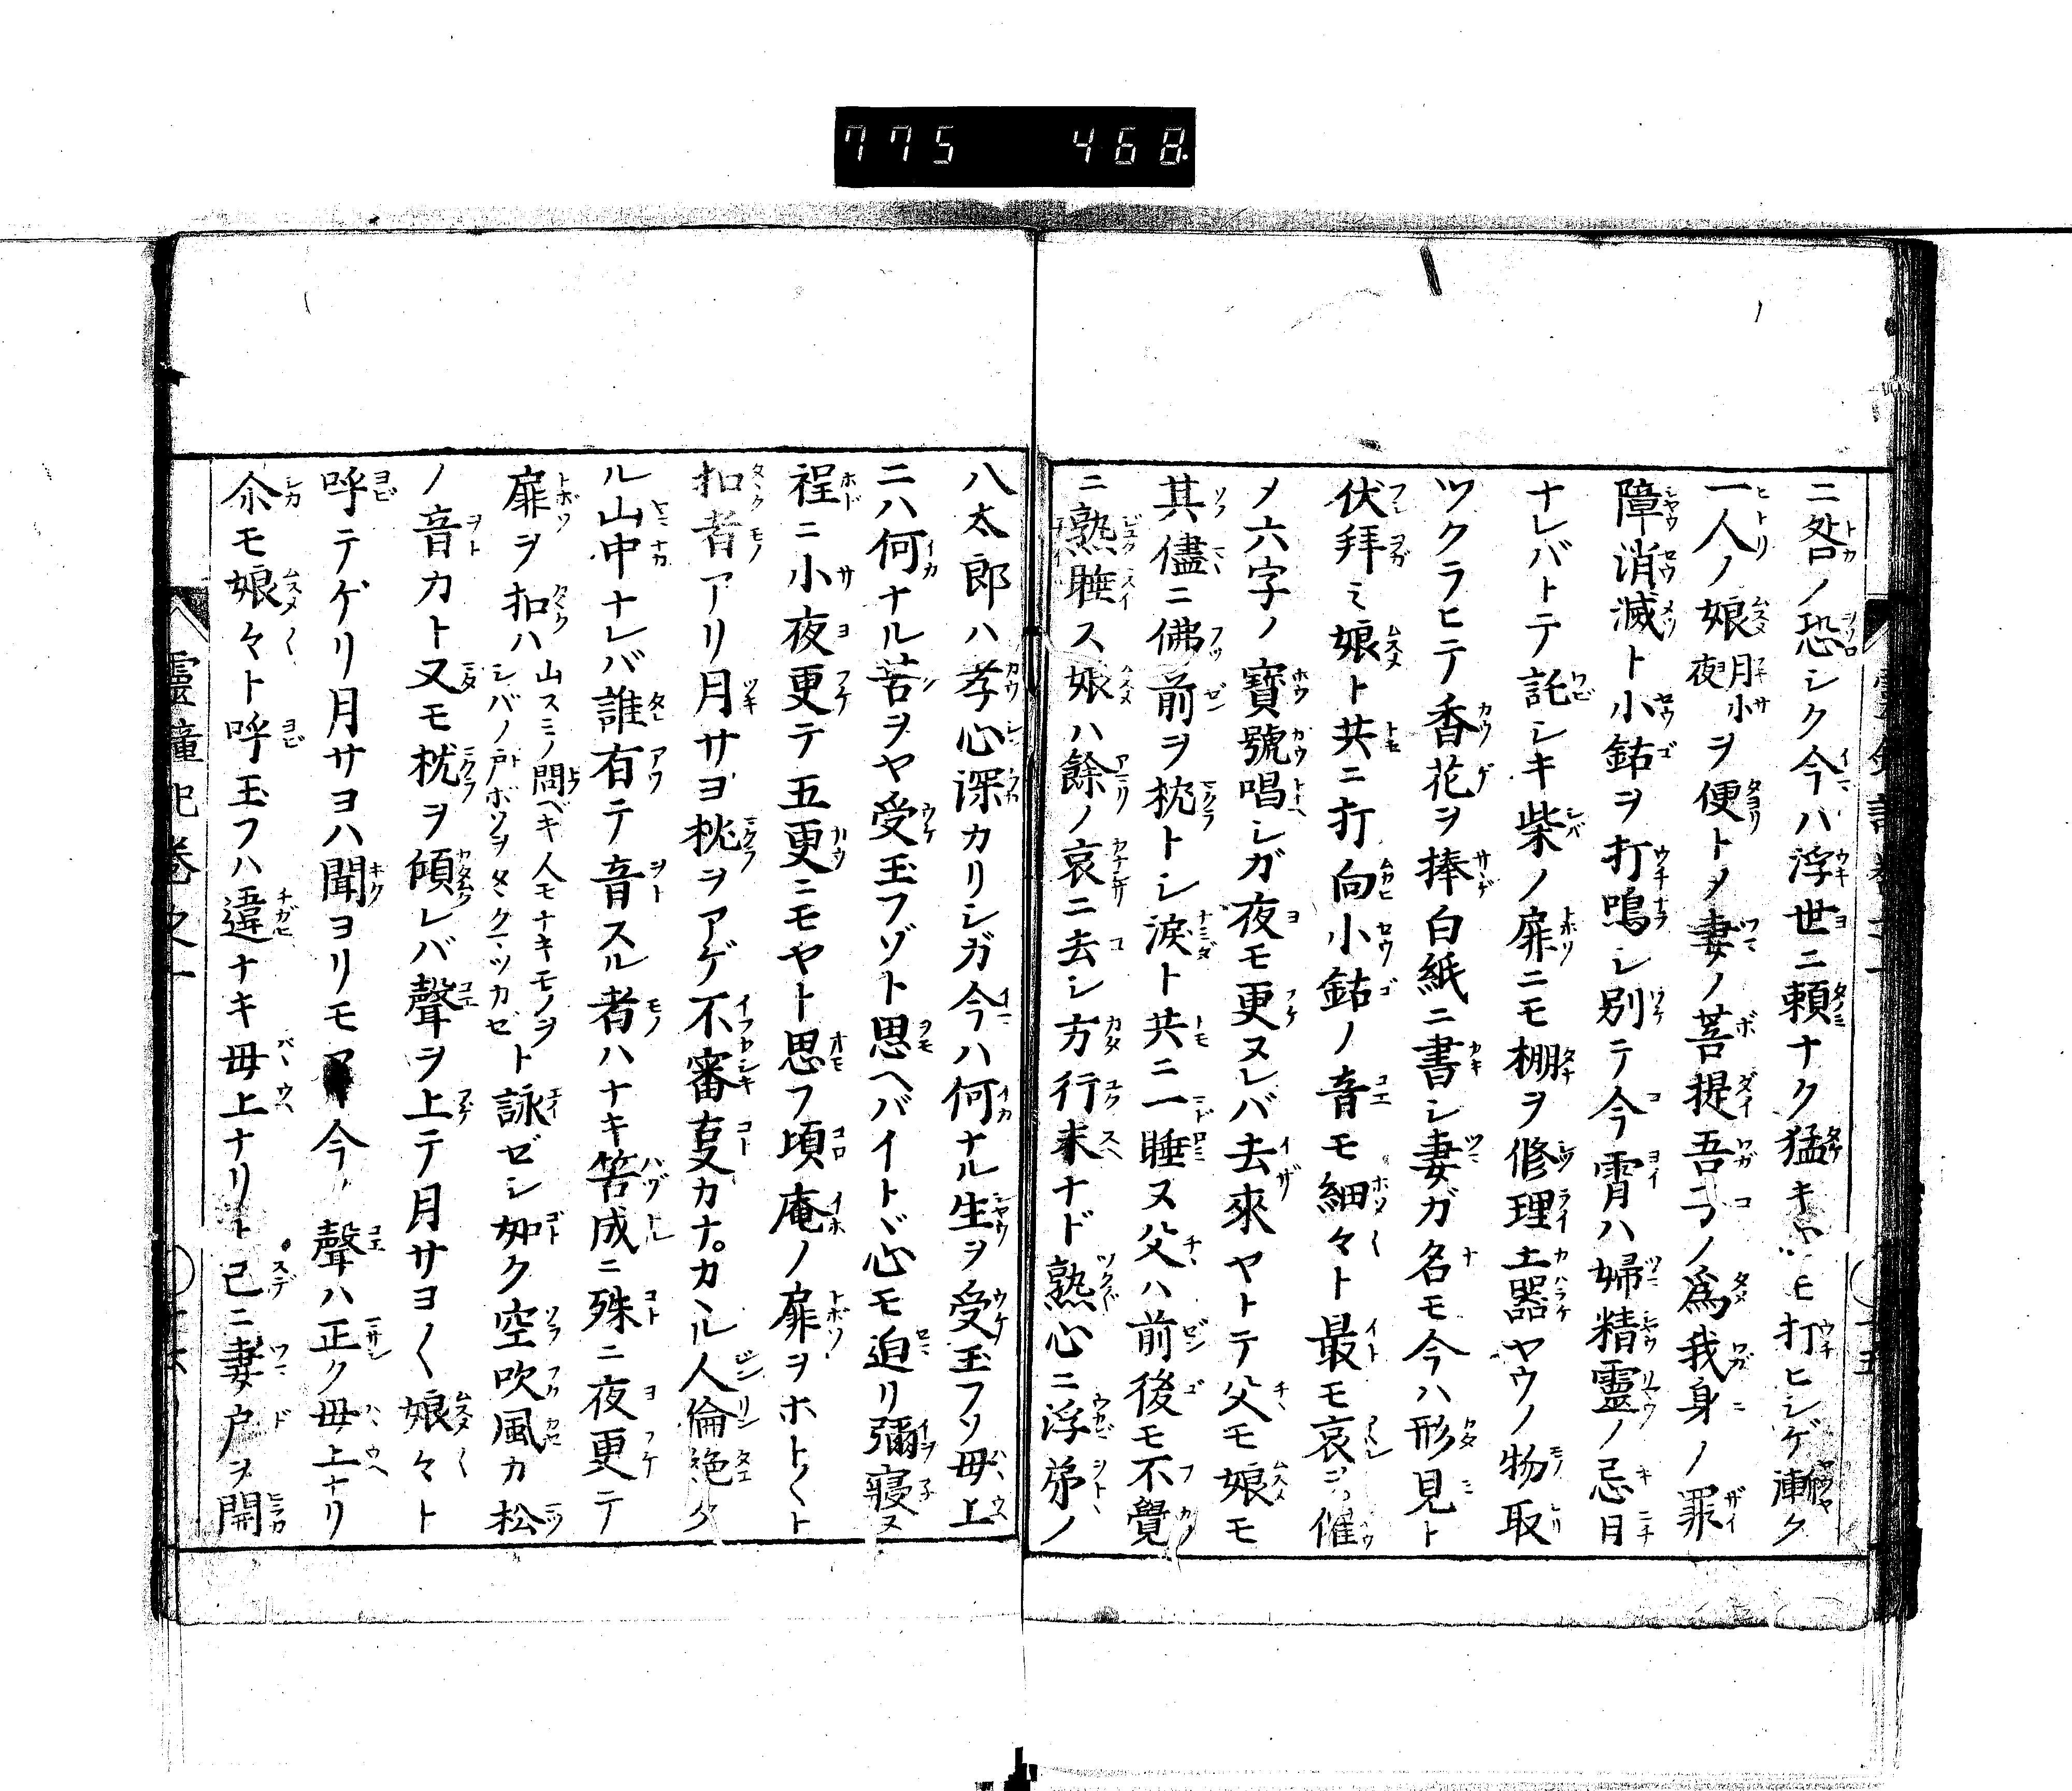 775 468.
ニ咎ノ恐シク今ハ浮世ニ頼ナク猛キヤ ヒ打ヒシゲ漸ク
一人ノ娘月小夜ヲ便トメ妻ノ菩提吾コノ爲我身ノ罪
障消滅ト小鈷ヲ打鳴シ別テ今宵ハ婦精靈ノ忌日
ナレバトテ詫シキ柴ノ扉ニモ棚ヲ修理土器ヤウノ物取
ツクラヒテ香花ヲ捧白紙ニ書シ妻ガ名モ今ハ形見ト
伏拜ミ娘ト共ニ打向小鈷ノ音モ細々ト最モ哀ヲ催
メ六字ノ寶號唱シガ夜モ更ヌレバ去來ヤトテ父モ娘モ
其儘ニ佛前ヲ枕トシ淚ト共ニ一睡ヌ父ハ前後モ不覺
ニ熟睡ス娘ハ餘ノ哀ニ去シ方行末ナド熟心ニ浮弟ノ
八太郎ハ孝心深カリシガ今ハ何ナル生ヲ受玉フソ母上
ニハ何ナル苦ヲヤ受玉フゾト思ヘバイトヾ心モ迫リ彌寢ヌ
程ニ小夜更テ五更ニモヤト思フ頃庵ノ扉ヲホト〳〵ト
扣者アリ月サヨ枕ヲアゲ不審叓カナ。カヽル人倫絶ク
ル山中ナレバ誰有テ音スル者ハナキ筈成ニ殊ニ夜更テ
扉ヲ扣ハ山スミノ問ベキ人モナキモノヲシバノ戸ボソヲタヽクマツカゼト詠ゼシ如ク空吹風カ松
ノ音カト又モ枕ヲ傾レバ聲ヲ上テ月サヨ〳〵娘々ト
呼テゲリ月サヨハ聞ヨリモ今ノ聲ハ正ク母上ナリ
尒モ娘々ト呼玉フハ違ナキ母上ナリト已ニ妻戸ヲ開
靈 記卷之一